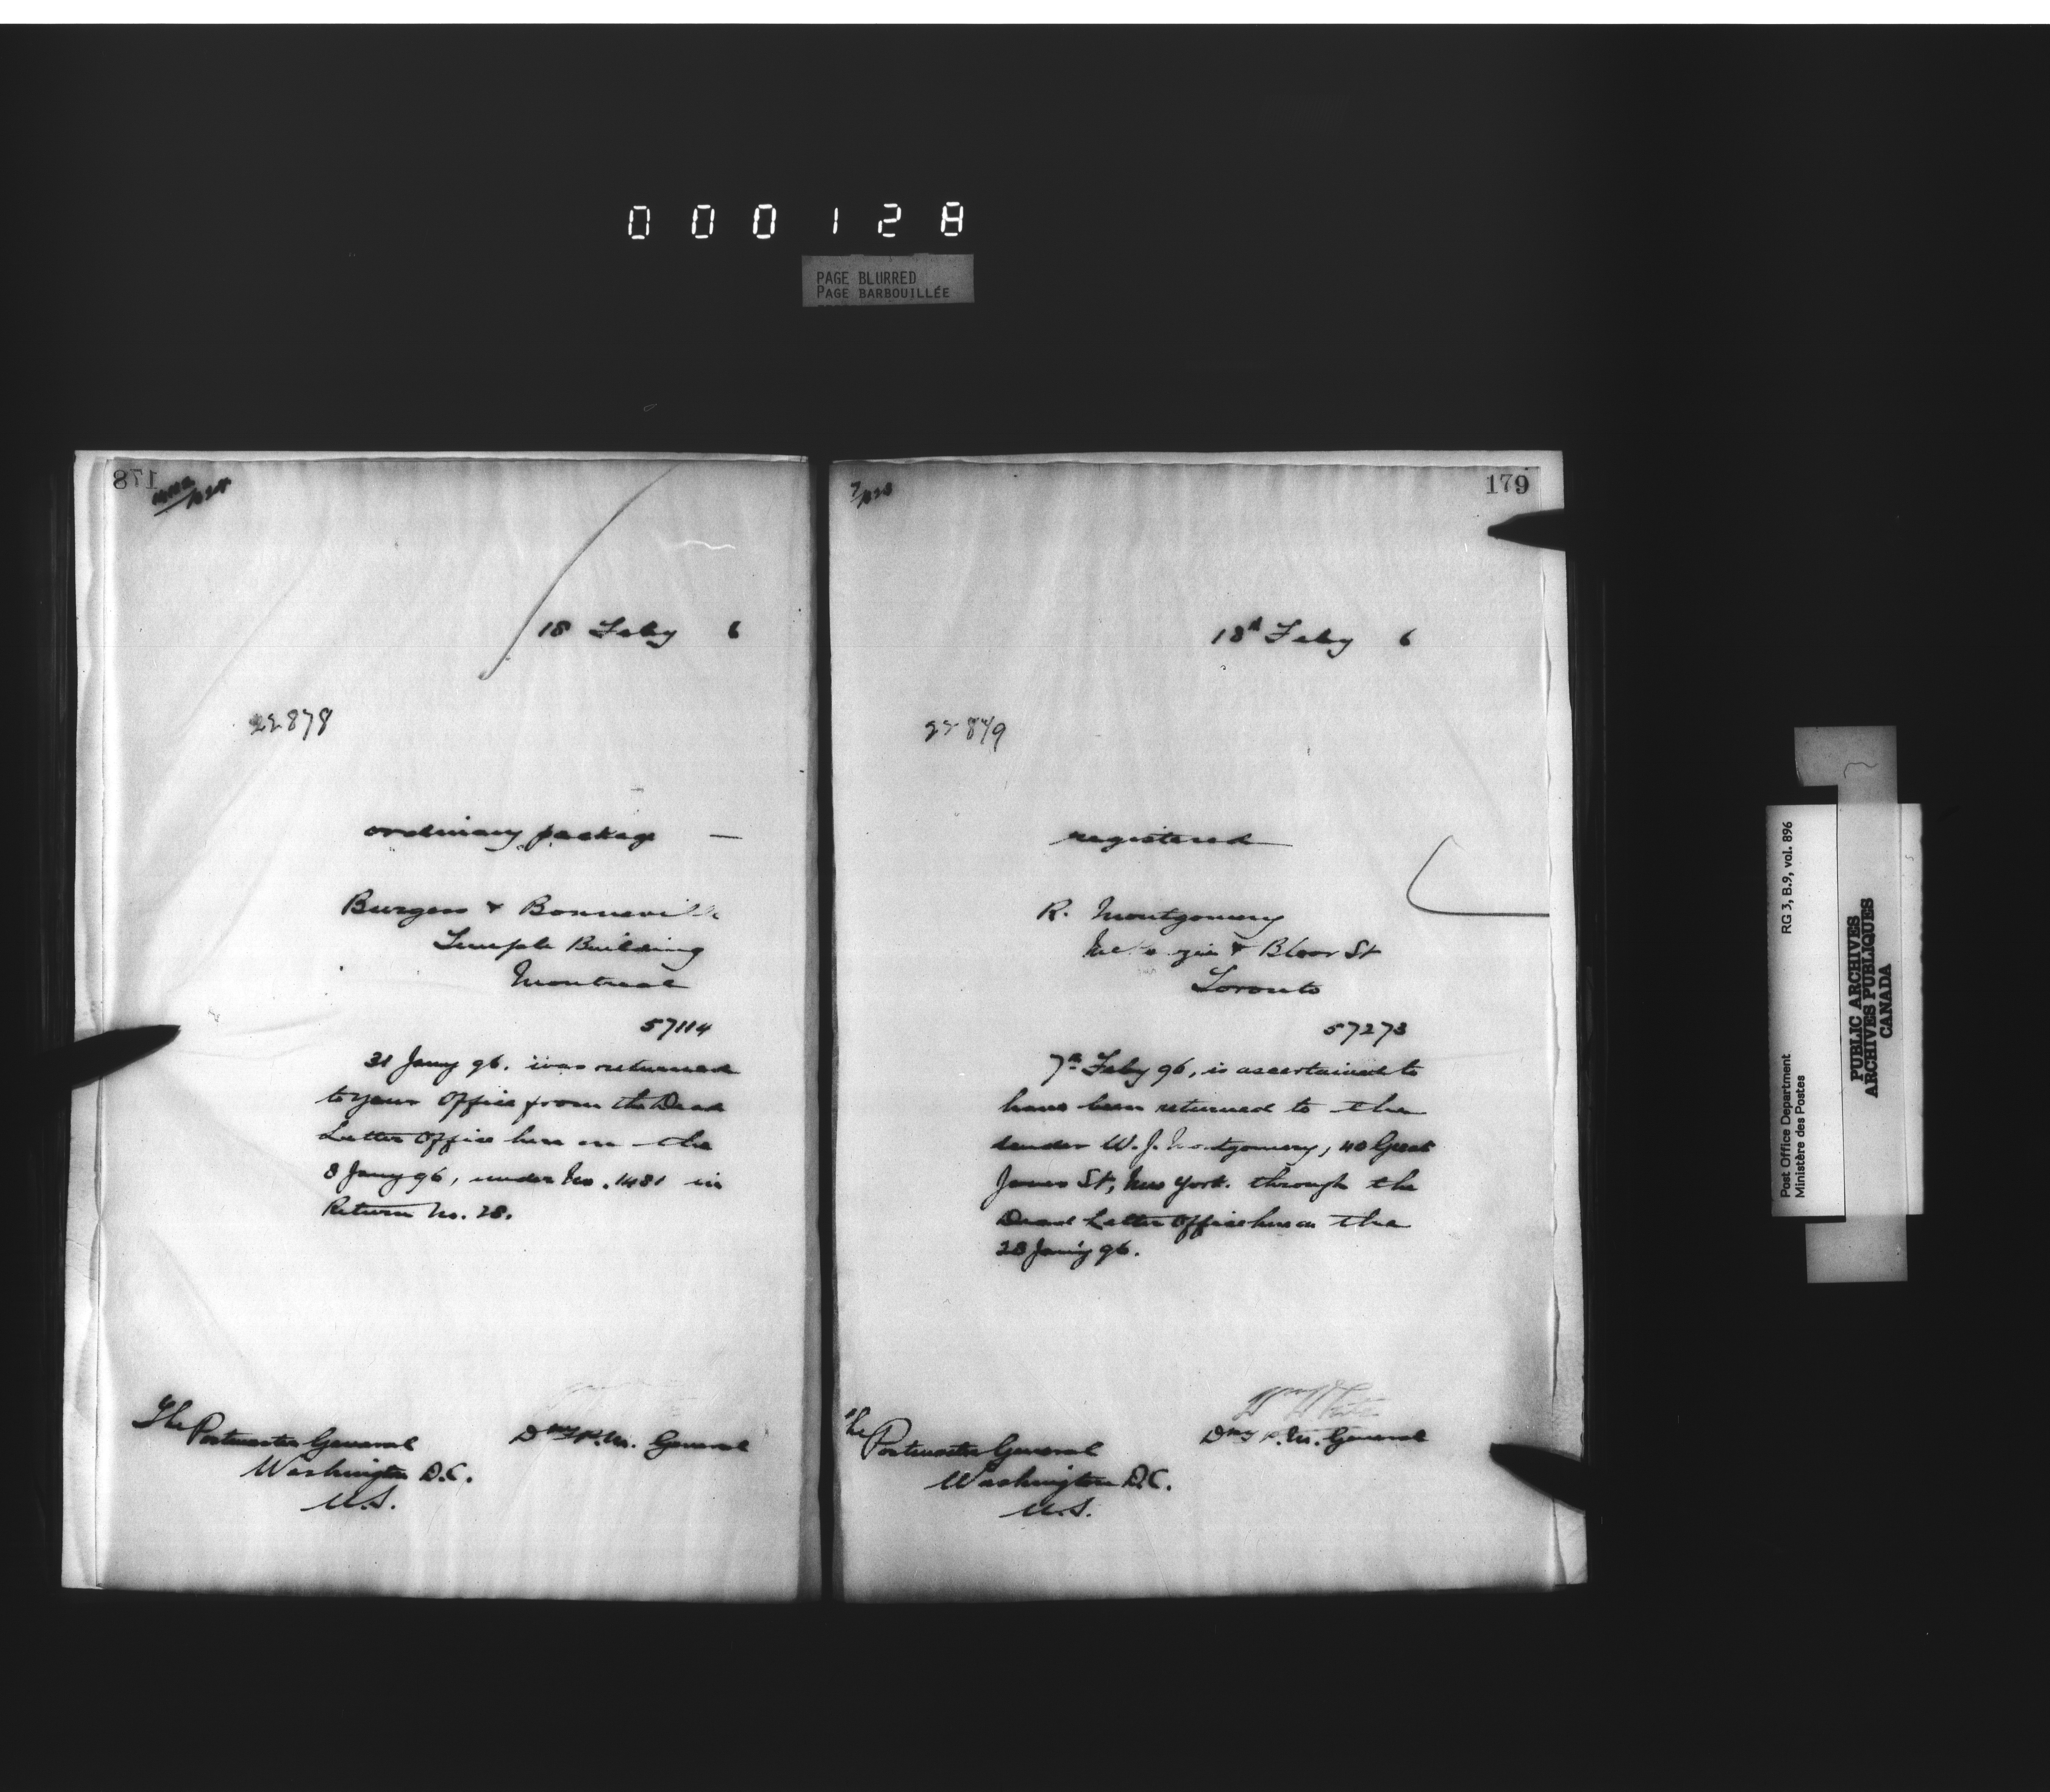 000128
PAGE BLURRED
PAGE BARBOUILLÉE
178
18 Feby 6
22878
ordinary package —
Burgess & Bonneville
Temple Building
Montreal
57114
31 Jany 96. was returned
to your Office from the Dead
Letter Office here on the
8 Jany 96, under No. 1481 in
Return No. 28.
Dpy P.M. General
The
Postmaster General
Washington D.C.
U.S.
179
18th Feby 6
registered
R. Montgomery
& Bloor St
Toronto
57273
7th Feby 96, is ascertained to
have been returned to the
sender W. J. Montgomery, 40 Great
Jones St, New York. through the
Dead Letter Office here on the
28 Jany 96.
Dpy P.M. General
The
Postmaster General
Washington D.C.
U.S.
Post Office Department
Ministère des Postes
RG 3, B.9, vol. 896
PUBLIC ARCHIVES
ARCHIVES PUBLIQUES
CANADA